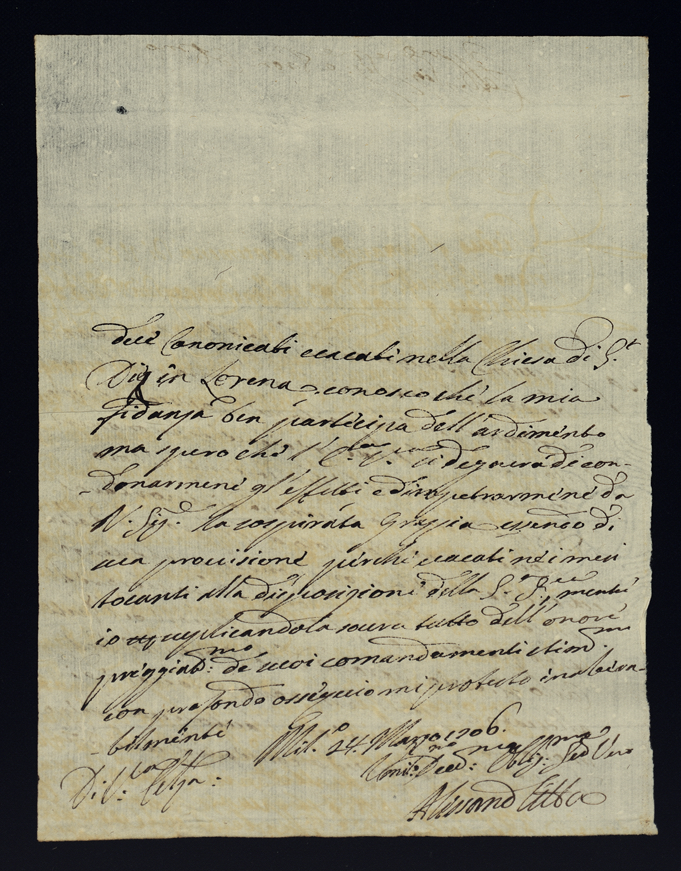 due Canonicati vacati nella Chiesa di S.t
Diè in Lorena, conosco che la mia
fidanza ben partecipa dell'ardimento
ma spero che l' si degnerà di con-
-donarmene gl'effetti e d'impetrarmene da
N. Sig.e la sospirata Grazia essendo di
sua provisione perche vacati nei mesi
tocanti alla disposizione della S.a Sede, mentre
io supplicandola sovra tutto dell'onore
preggiat.mo de suoi comandamenti stim.mi
con profondo ossequio mi protesto inviola-
-bilmente
Mil.o 24. Marzo 1706.
Di V.
Umil.mo Dev.mo Obblig.mo Ser. Vero
Alessand